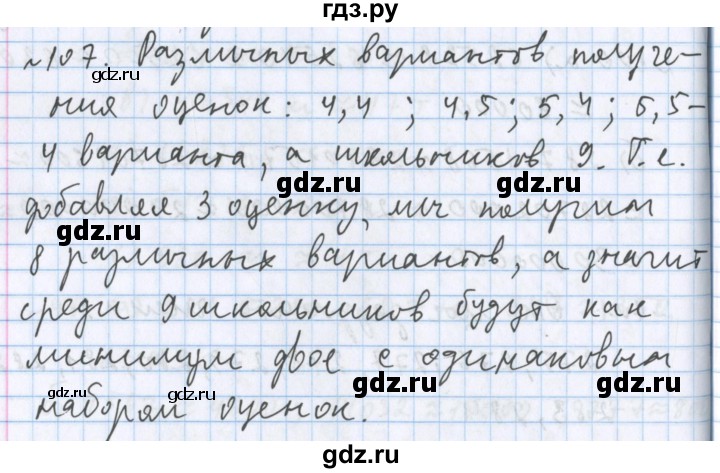 гдз.ру
№107. Различных вариантов получе-
ния оценок: 4,4 ; 4,5; 5,4; 5,5-
4 варианта, а школьников 9. Т.е.
gdz.ru gdz.ru
добавляя 3 оценку, мы получим
gdz.ru
8 различных вариантов, а значит
gdz.ru
среди 9 школьников будут как
минимум двое с одинаковым
gdz.ru gdz.ru
набором оценок.
gdz.ru gdz.ru